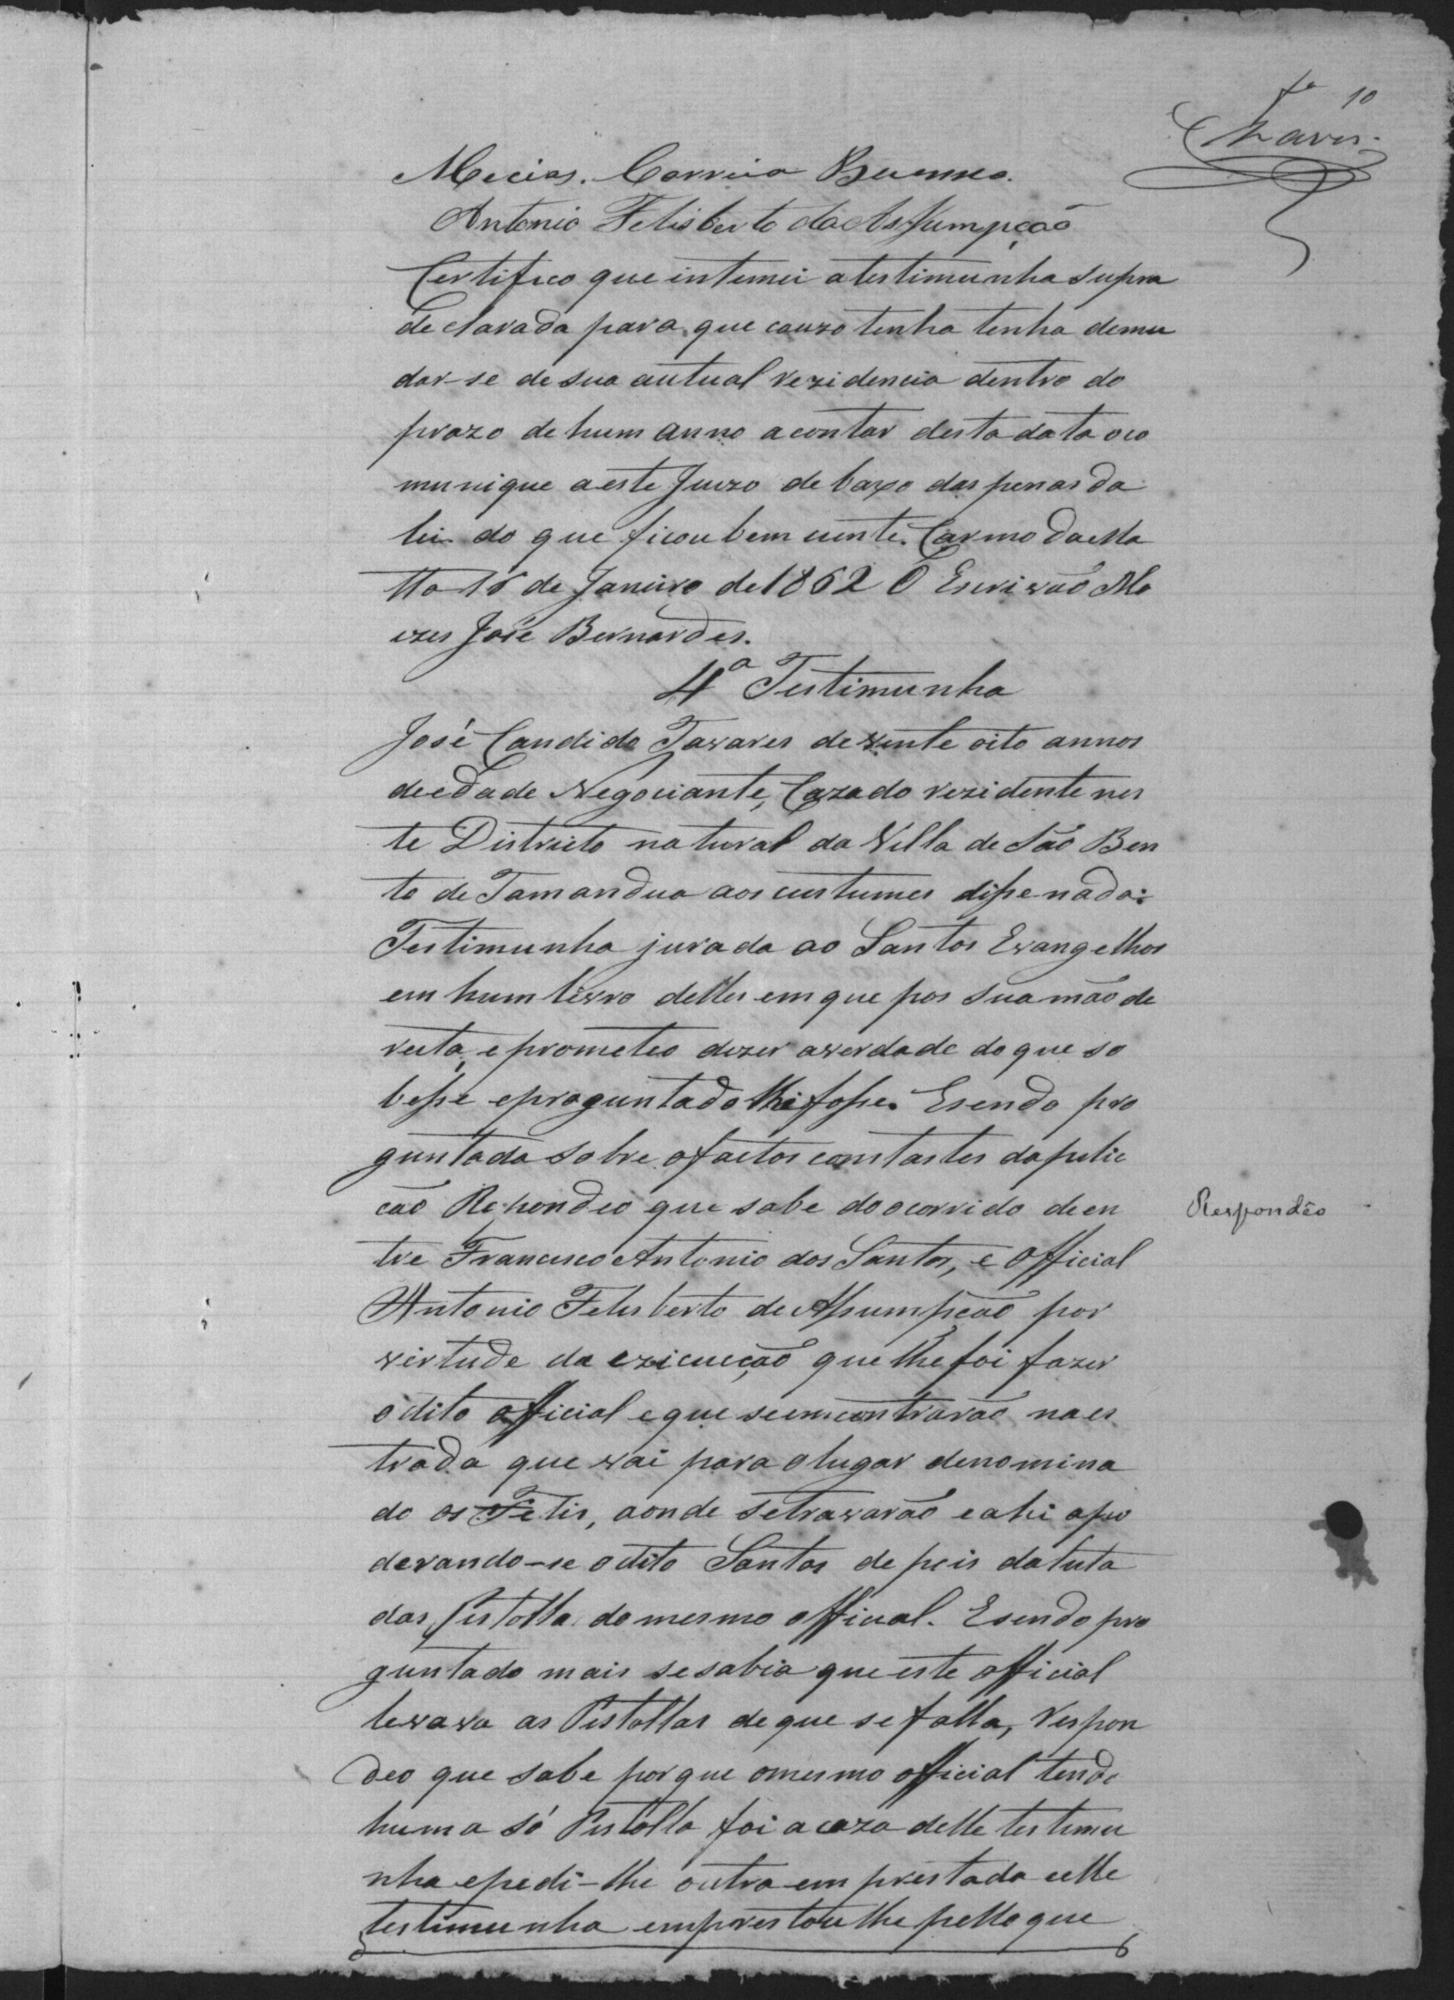 fª 10
Chaves
Mecias Correia Buenno.
Antonio Felisberto da Assumpção
Certifico que intemei a testimunha supra
declarada para que cauzo tenha tenha demu
dar-se de sua autual rezidencia dentro do
prazo de hum anno a contar desta data o co
munique a este Juizo debaxo das penas da
lei do que ficou bem ciente. Carmo da Ma
tta 16 de Janeiro de 1862 O Escrivão Mo
izes José Bernardes.
4ª Testimunha
José Candido Tavares de vinte oito annos
de edade Negociante, Cazado rezidente nes
te Districto natural da Villa de São Ben
to de Tamandua aos custumes disse nada:
Testimunha jurada ao Santos Evangelhos
em hum livro delles em que pos sua mão de
reita, e prometeo dizer a verdade do que so
besse e proguntado lhe fosse. E sendo pro
guntada sobre o factos constastes da petic
ção Repondeo que sabe do ocorrido de en
Respondêo
tre Francisco Antonio dos Santos, e Official
Antonio Felisberto de Assumpção por
virtude da ezicucção que lhe foi fazer
o dito official e que se emcontrarão na es
trada que vai para o lugar denomina
do os Felis, aonde se travarão e ahi apo
derando-se o dito Santos depois da luta
das Pistolla do mesmo official. E sendo pro
guntado mais se sabia que este official
levava as Pistollas de que se falla, respon
deo que sabe porque o mesmo official tendo
huma só Pistolla foi a caza delle testimu
nha e pedi-lhe outra emprestada e elle
testimunha emprestou lhe pello que